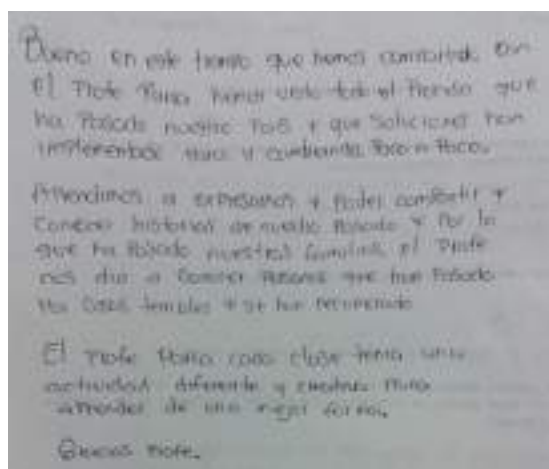 Bueno en este tiempo que hemos compartido con
el Profe hemos visto todo el que
ha Pasado nuestro País y que Soluciones han
implementado Para ir cambiando Poco a Poco.
Aprendimos a expresarnos y Poder compartir y
Conocer historias de nuestro Pasado y Por lo
que ha Pasado nuestras familias, el Profe
nos dio a Conocer Personas que han Pasado
Por Cosas terribles y se han recuperado
El Profe cada clase tenia una
actividad diferente y creativa Para
aprender de una mejor forma.
Gracias Profe.